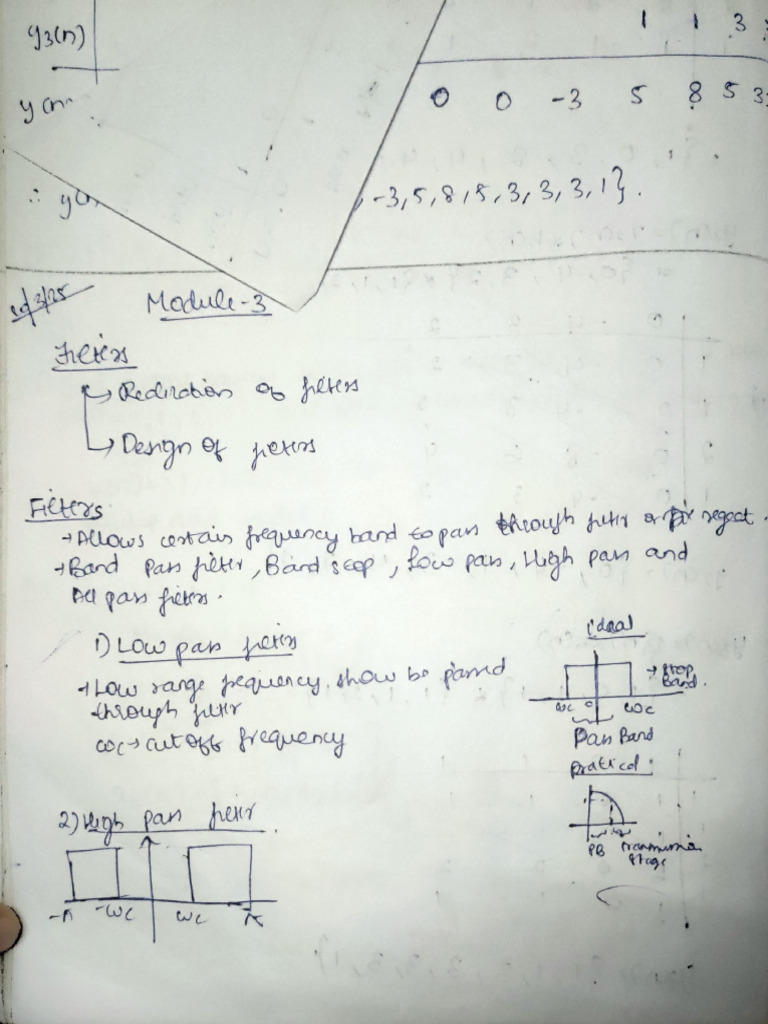 y3(n) 1 1 3
y(n 0 0 -3 5 8 5 3
∴ y( , -3,5,8,5,3,3,3,1}.
Module-3
Filters
↳ Realization of filters
↳ Design of filters
Filters
→ Allows certain frequency band to pass through filter or for regect.
→ Band pass filter, Band stop, Low pass, High pass and
All pass filters.
ideal
1) Low pass filters
→ Low range frequency show be passed
through filter
→ Stop
Band.
ωc 0 ωc
ωc → cutoff frequency
Pass Band
pratical
2) High pass filter
PB transmission
stage
-π -ωc ωc π